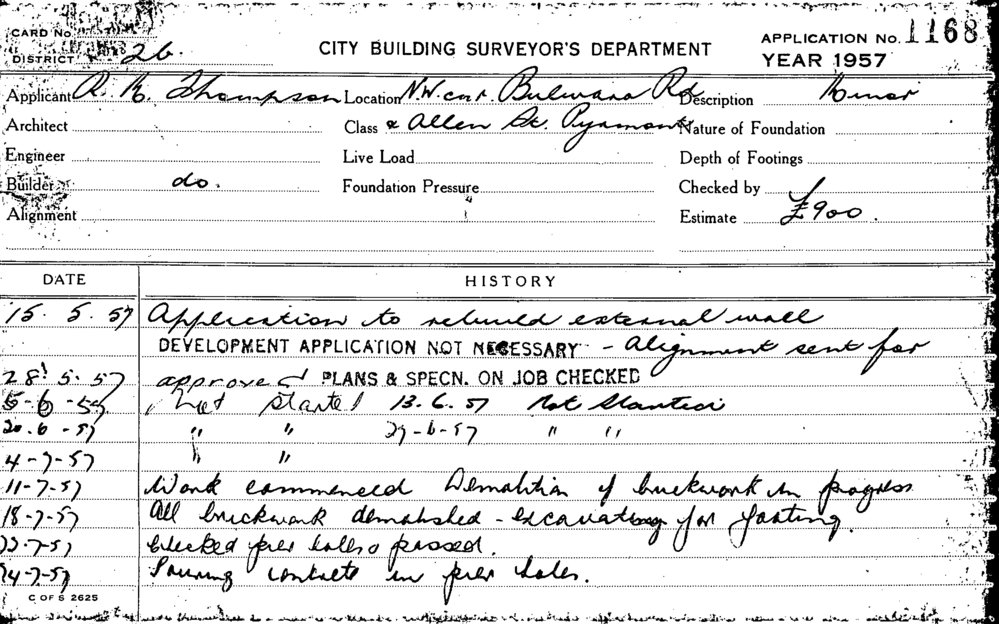 CARD No.
DISTRICT 26.
CITY BUILDING SURVEYOR'S DEPARTMENT
APPLICATION No. 1168
YEAR 1957
Applicant A. R. Thompson Location N.W. cnr. Bulwara Rd Description Minor
Architect Class & Allen St. Pyrmont Nature of Foundation
Engineer Live Load Depth of Footings
Builder do. Foundation Pressure Checked by
Alignment Estimate £900.
DATE HISTORY
15. 5. 57 Application to rebuild external wall
DEVELOPMENT APPLICATION NOT NECESSARY - Alignment sent for
28. 5. 57 approved PLANS & SPECN. ON JOB CHECKED
5-6-57 Not started 13.6.57 Not Started
20.6-57 " " 27-6-57 " "
4-7-57 " "
11-7-57 Work commenced Demolition of brickwork in progress
18-7-57 All brickwork demolished - excavating for footing.
22-7-57 Checked pier holes passed.
24-7-57 Pouring concrete in pier holes.
C OF S 2625